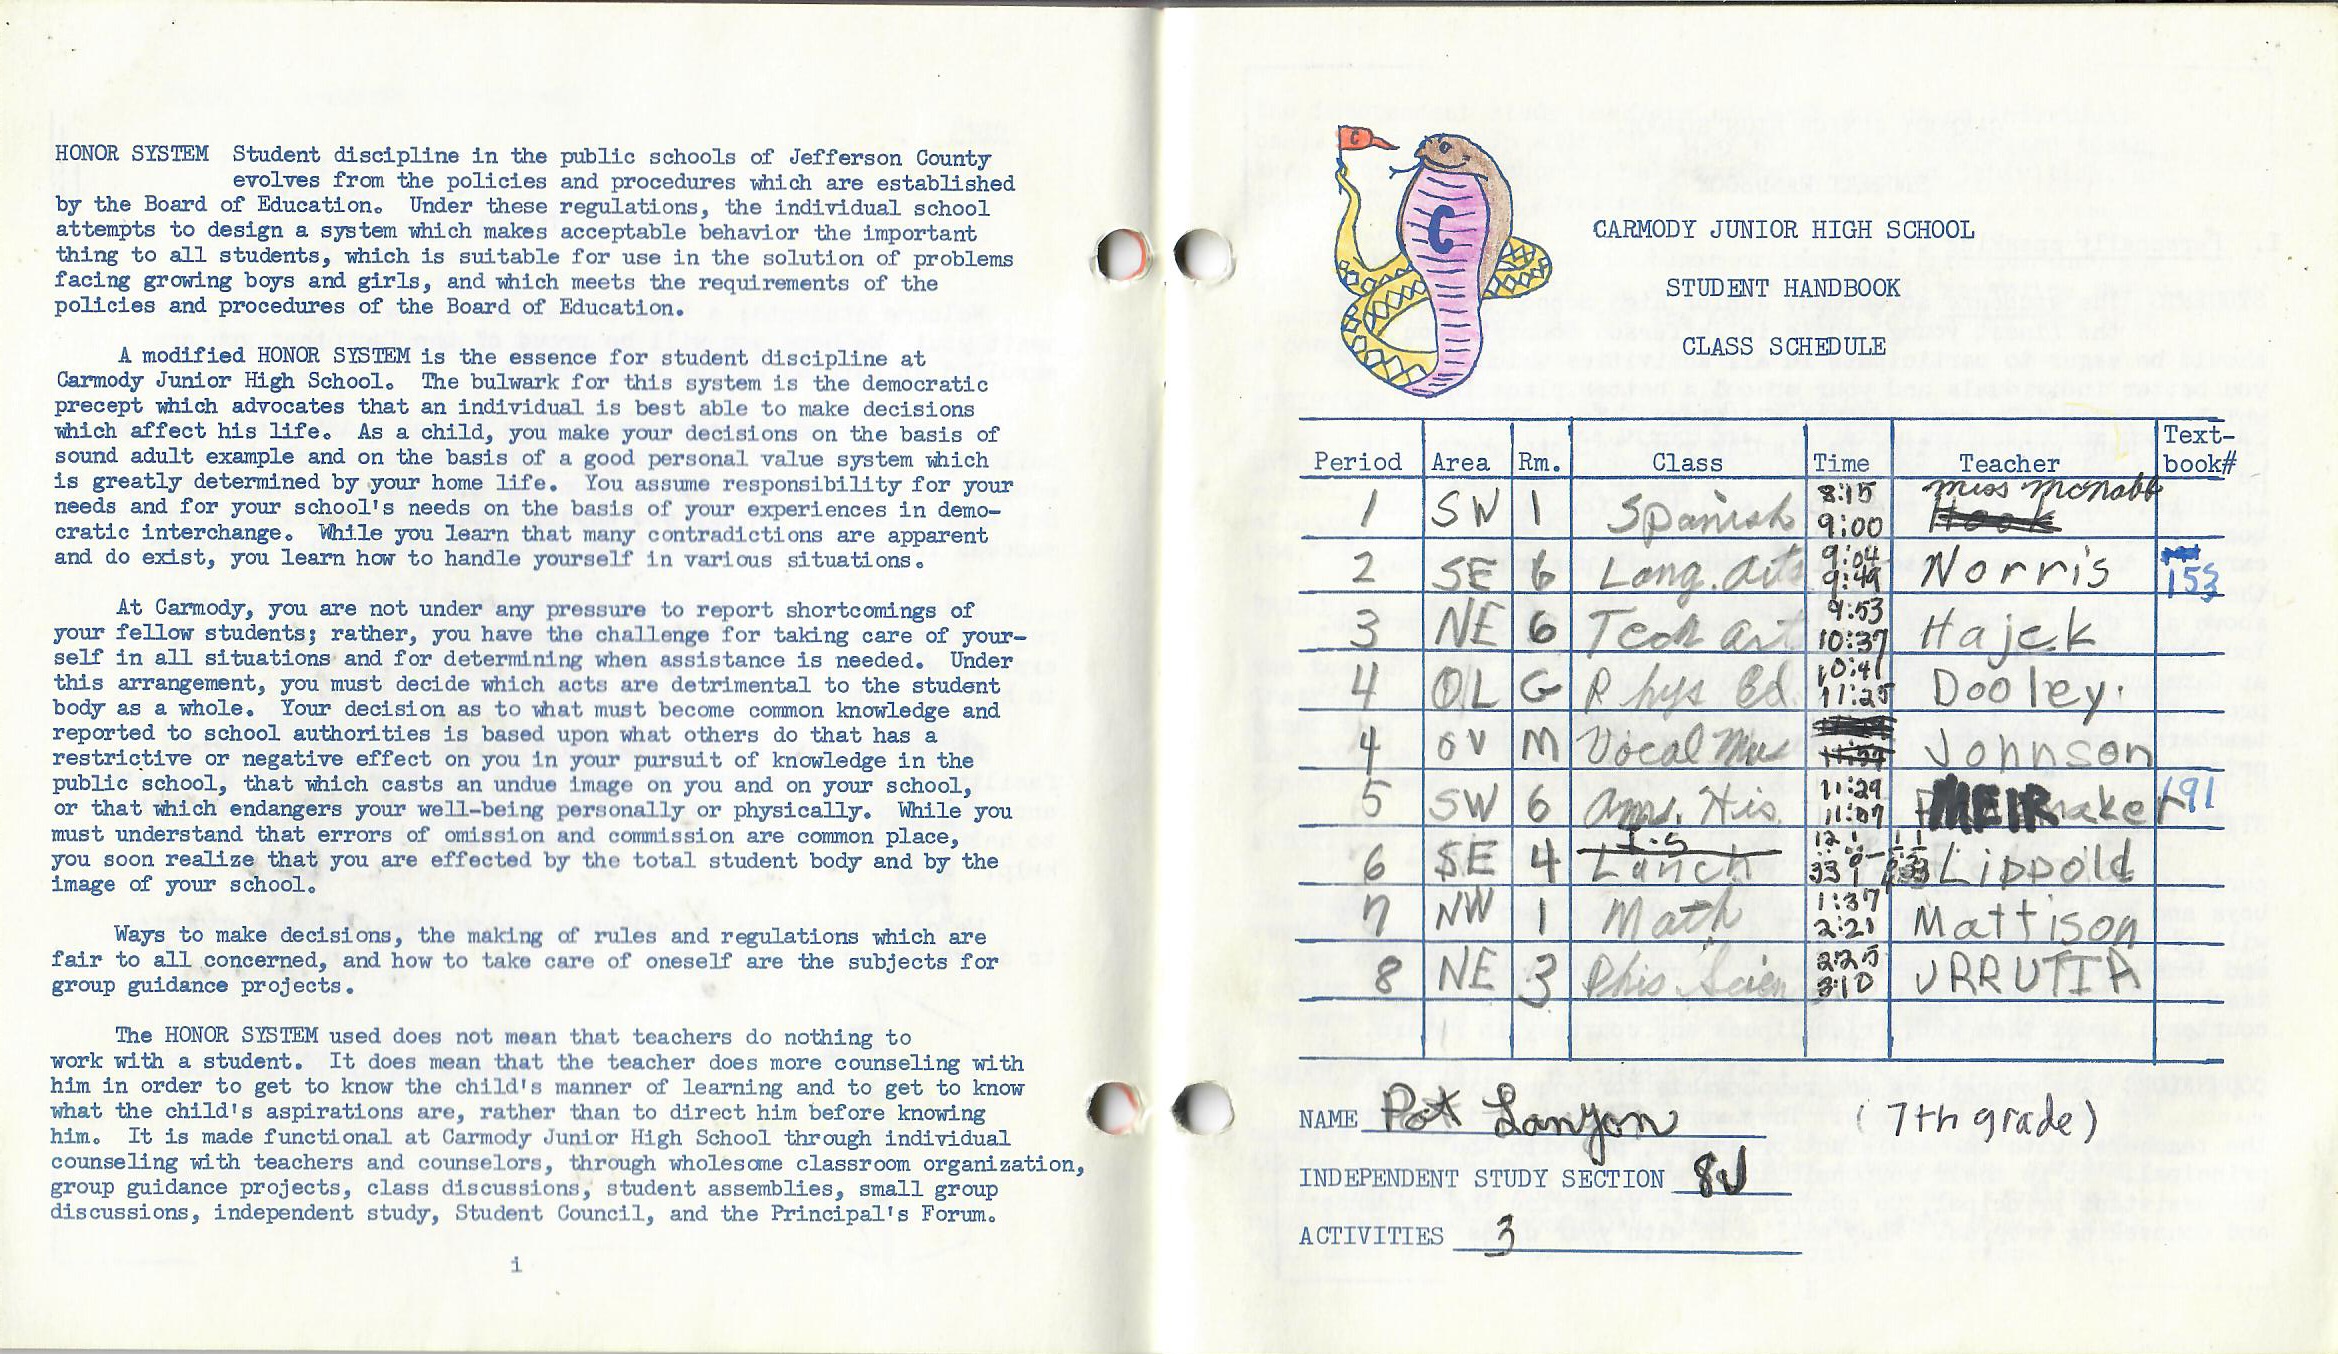 HONOR SYSTEM Student discipline in the public schools of Jefferson County
evolves from the policies and procedures which are established
by the Board of Education. Under these regulations, the individual school
attempts to design a system which makes acceptable behavior the important
thing to all students, which is suitable for use in the solution of problems
facing growing boys and girls, and which meets the requirements of the
policies and procedures of the Board of Education.
A modified HONOR SYSTEM is the essence for student discipline at
Carmody Junior High School. The bulwark for this system is the democratic
precept which advocates that an individual is best able to make decisions
which affect his life. As a child, you make your decisions on the basis of
sound adult example and on the basis of a good personal value system which
is greatly determined by your home life. You assume responsibility for your
needs and for your school's needs on the basis of your experiences in demo-
cratic interchange. While you learn that many contradictions are apparent
and do exist, you learn how to handle yourself in various situations.
At Carmody, you are not under any pressure to report shortcomings of
your fellow students; rather, you have the challenge for taking care of your-
self in all situations and for determining when assistance is needed. Under
this arrangement, you must decide which acts are detrimental to the student
body as a whole. Your decision as to what must become common knowledge and
reported to school authorities is based upon what others do that has a
restrictive or negative effect on you in your pursuit of knowledge in the
public school, that which casts an undue image on you and on your school,
or that which endangers your well-being personally or physically. While you
must understand that errors of omission and commission are common place,
you soon realize that you are effected by the total student body and by the
image of your school.
Ways to make decisions, the making of rules and regulations which are
fair to all concerned, and how to take care of oneself are the subjects for
group guidance projects.
The HONOR SYSTEM used does not mean that teachers do nothing to
work with a student. It does mean that the teacher does more counseling with
him in order to get to know the child's manner of learning and to get to know
what the child's aspirations are, rather than to direct him before knowing
him. It is made functional at Carmody Junior High School through individual
counseling with teachers and counselors, through wholesome classroom organization,
group guidance projects, class discussions, student assemblies, small group
discussions, independent study, Student Council, and the Principal's Forum.
i
C
C
CARMODY JUNIOR HIGH SCHOOL
STUDENT HANDBOOK
CLASS SCHEDULE
Period Area Rm. Class Time Teacher Text-book#
1 SW 1 Spanish 8:15 9:00 Miss McNabb Hook
2 SE 6 Lang. Arts 9:04 9:49 Norris 153
3 NE 6 Tech Art 9:53 10:37 Hajek
4 OL G Phys Ed. 10:41 11:25 Dooley.
4 OV M Vocal Mus Johnson
5 SW 6 Am. His. 11:29 11:07 MEIR maker 191
6 SE 4 I.S Lunch Lippold
7 NW 1 Math 1:37 2:21 Mattison
8 NE 3 Phis Scien 2:25 3:10 URRUTIA
NAME Pat Lanyon (7th grade)
INDEPENDENT STUDY SECTION 8J
ACTIVITIES 3